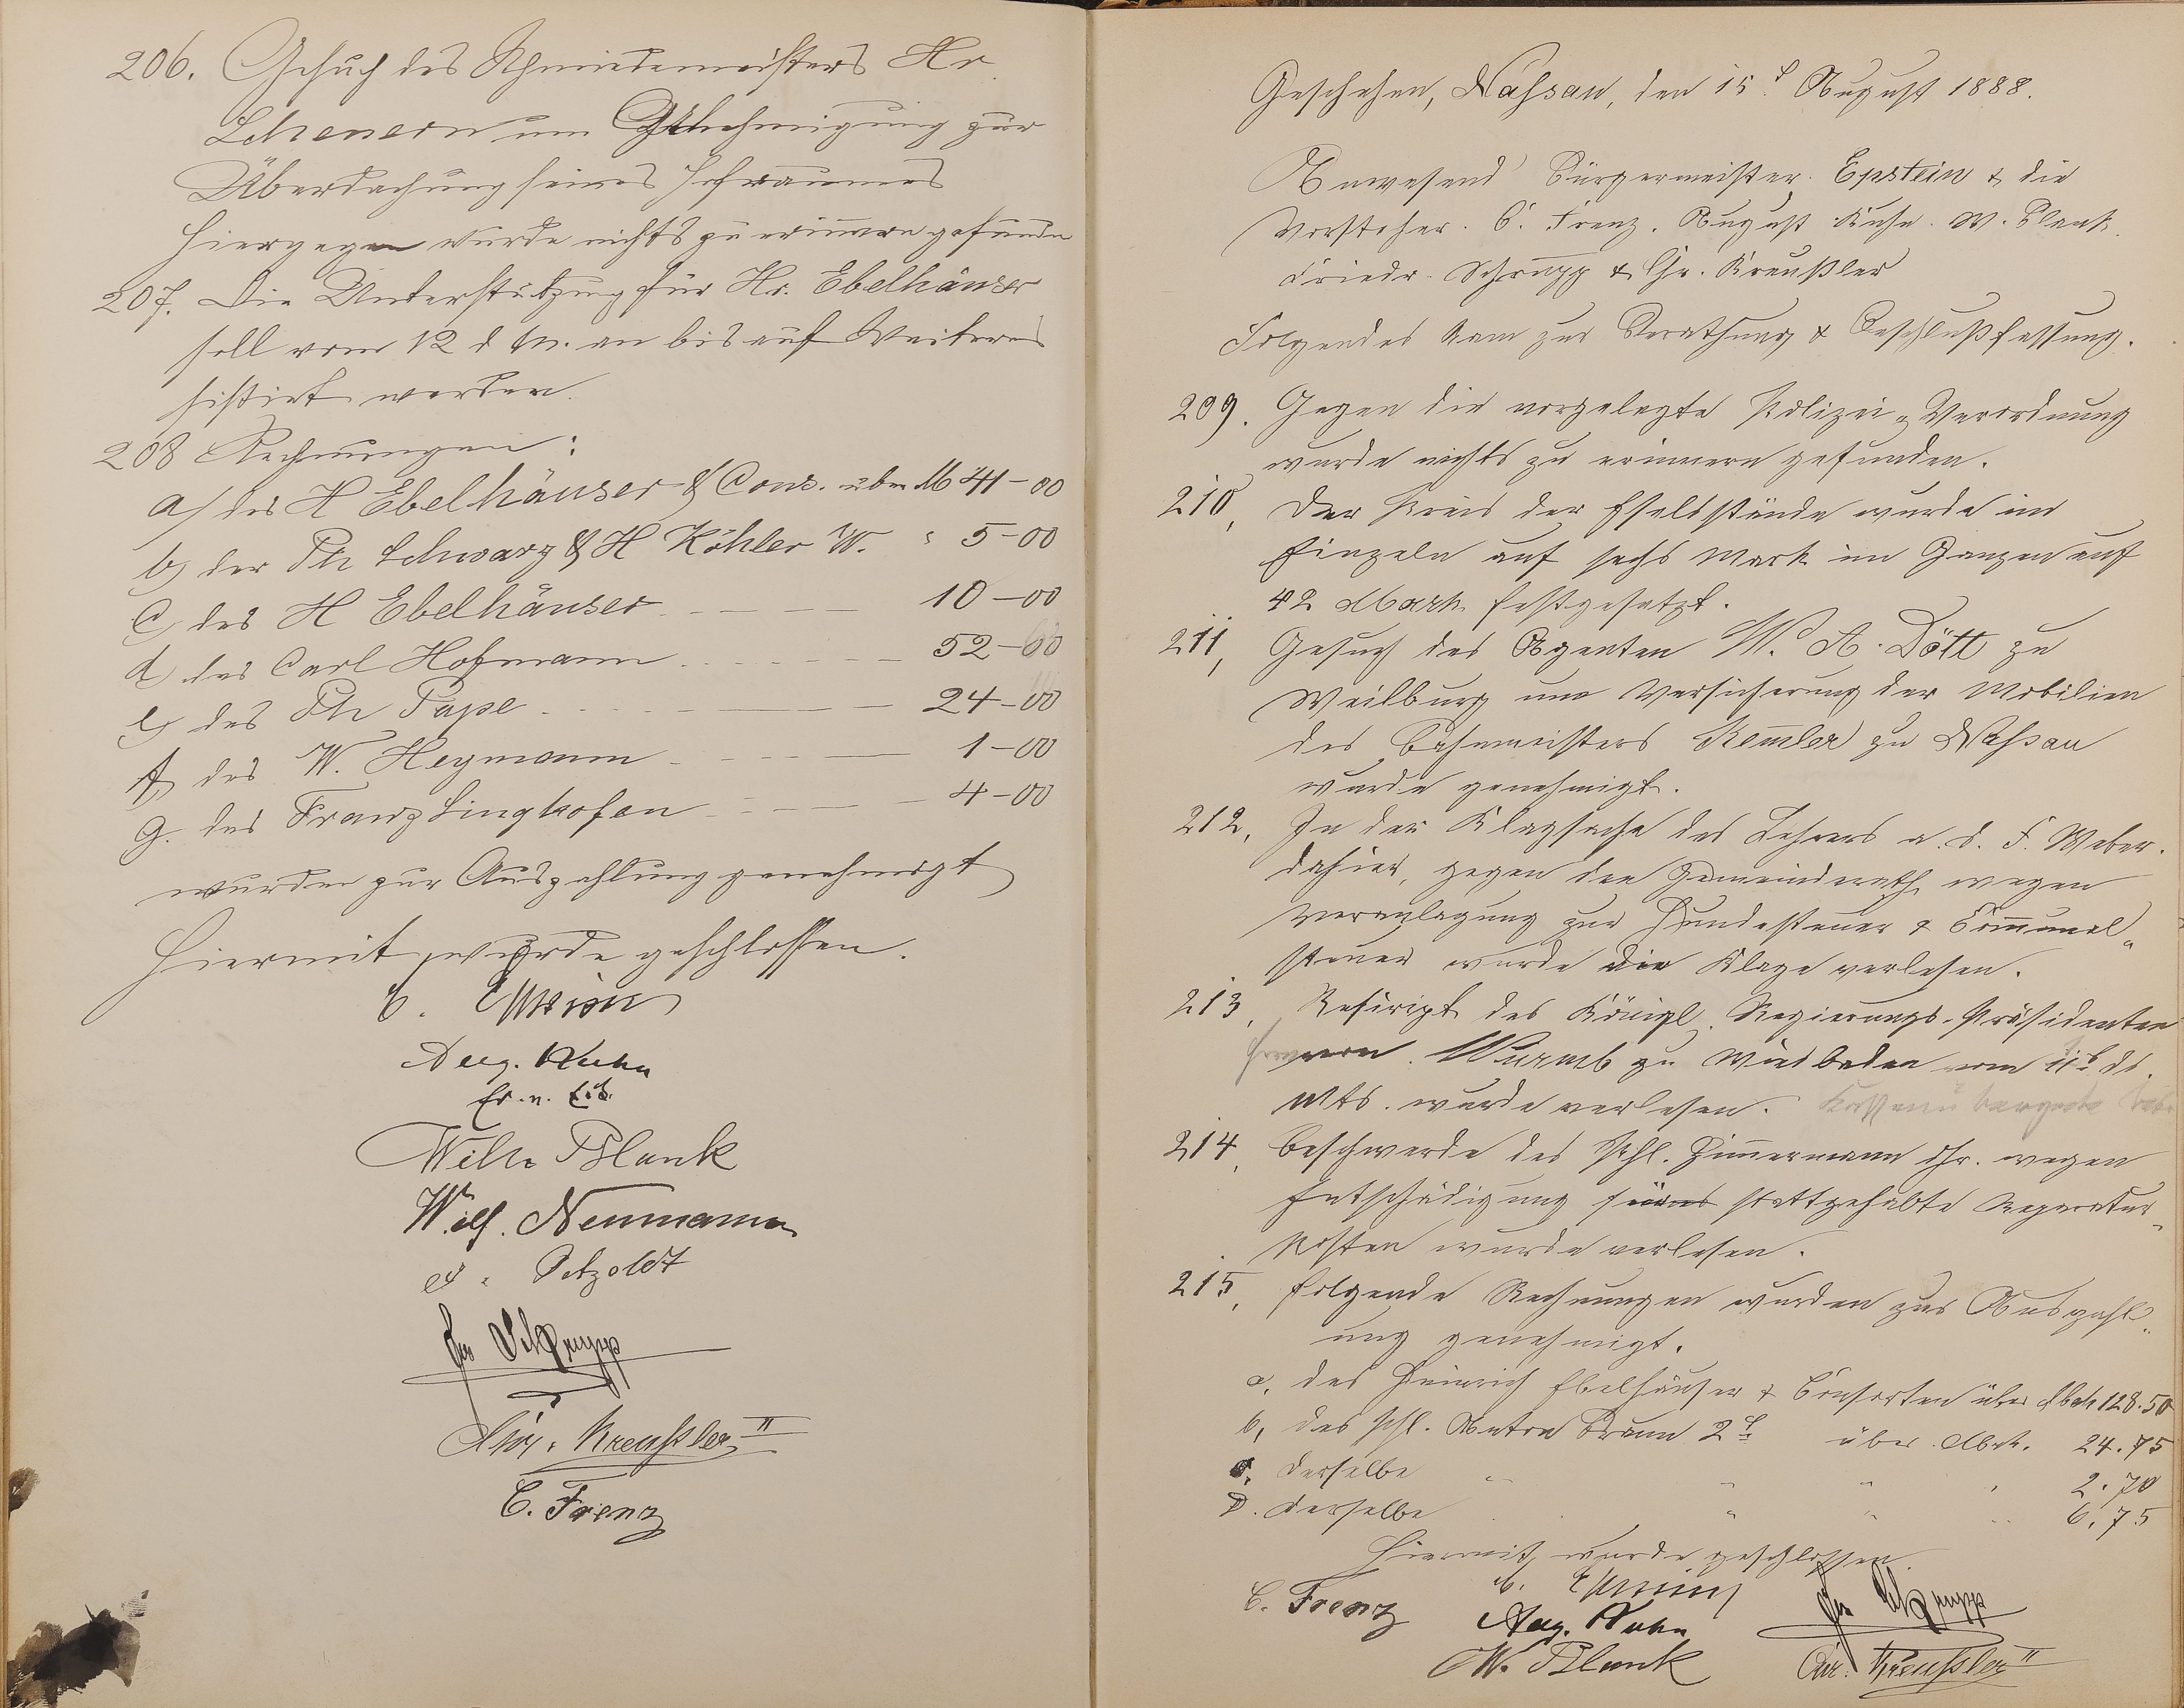 206. Gesuch des Schmiedemeisters Hr.
Scheuern um Genehmigung zur
Überdachung seines Hofraumes
hiergegen wurde nichts zu erinnern gefunden
207. Die Unterstützung für Hr. Ebelhäuser
soll vom 12 d M. an bis auf Weiteres
sistirt werden.
208 Rechnungen:
a) des H Ebelhäuser & Cons. über M 41-00
b) der Ph Schwarz & H Köhler W. " 5-00
c) des H Ebelhäuser 10-00
d) des Carl Hofmann 52-60
e) des Ph Pape 24-00
f) des W. Heymann 1-00
g. des Franz Linghofen 4-00
wurden zur Auszahlung genehmigt
Hiermit wurde geschlossen.
C. Epstein
Aug. Kuhn
Wilh Blank
Wilh. Neumann
Petzoldt
Fr Schrupp
Chr. Kreußler II
C. Frenz
Geschehen, Nassau, den 15t. August 1888.
Anwesend Bürgermeister Epstein & die
Vorsteher. C. Frenz. August Kuhn. W. Blank.
Friedr. Schrupp & Chr. Kreußler
Folgendes kam zur Berathung & Beschlußfassung.
209. Gegen die vorgelegte Polizei-Verordnung
wurde nichts zu erinnern gefunden.
210, Der Preis der Eselsstände wurde im
Einzeln auf sechs Mark im Ganzen auf
42 Mark festgesetzt.
211, Gesuch des Agenten W. A. Dött zu
Weilburg um Versicherung der Mobilien
des Bahnmeisters Remler zu Nassau
wurde genehmigt.
212, In der Klagsache des Lehrers a. D. F. Weber.
dahier, gegen den Gemeinderath wegen
Veranlagung zur Hundesteuer & Communal-
steuer wurde die Klage verlesen.
213, Rescript des Königl. Regierungs-Präsidenten
Herrn von Wurmb zu Wiesbaden vom 11t ds.
Mts. wurde verlesen.
214, Beschwerde des Phl. Zimmermann Chr. wegen
Entschädigung für stattgehabte Reparatur-
kosten wurde verlesen.
215, folgende Rechnungen wurden zur Auszahl-
ung genehmigt.
a, des Heinrich Ebelhäuser & Consorten über Mark 128.50
b, des Phl. Anton Braun 2t über Mrk. 24.75
c, derselbe " " " " 2.70
D. derselbe " " " 6,75
Hiermit wurde geschlossen.
C. Epstein
C. Frenz
Aug. Kuhn
Fr Schrupp
W. Blank
Chr. Kreußler II